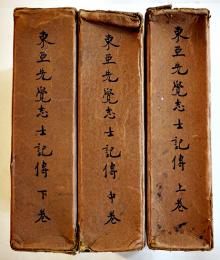 東亜先覺志士記傳 上巻
東亜先覺志士記傳 中巻
東亜先覺志士記傳 下巻